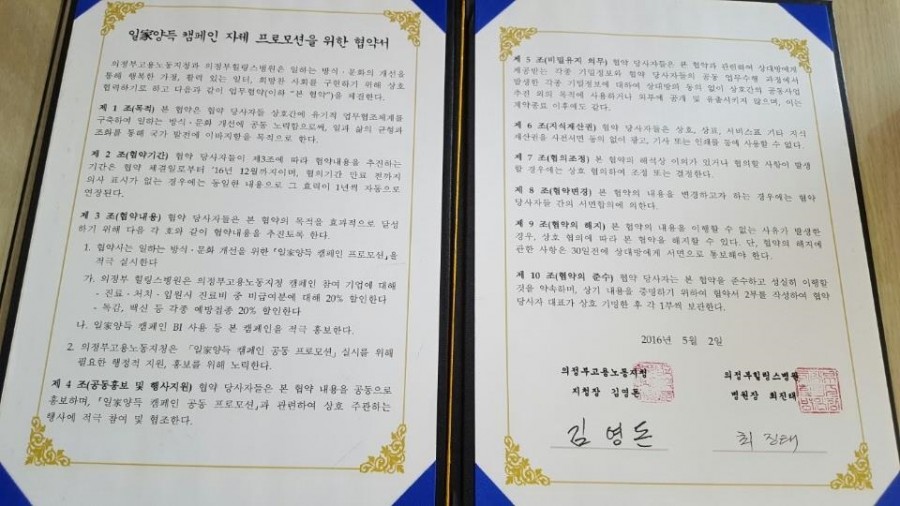 일家양득 캠페인 자체 프로모션을 위한 협약서
의정부고용노동지청과 의정부힐링스병원은 일하는 방식·문화의 개선을
통해 행복한 가정, 활력 있는 일터, 희망찬 사회를 구현하기 위해 상호
협력하기로 하고 다음과 같이 업무협약(이하 "본 협약")을 체결한다.
제 1 조(목적) 본 협약은 협약 당사자들 상호간에 유기적 업무협조체계를
구축하여 일하는 방식·문화 개선에 공동 노력함으로써, 일과 삶의 균형과
조화를 통해 국가 발전에 이바지함을 목적으로 한다.
제 2 조(협약기간) 협약 당사자들이 제3조에 따라 협약내용을 추진하는
기간은 협약 체결일로부터 '16년 12월까지이며, 협의기간 만료 전까지
의사 표시가 없는 경우에는 동일한 내용으로 그 효력이 1년씩 자동으로
연장된다.
제 3 조(협약내용) 협약 당사자들은 본 협약의 목적을 효과적으로 달성
하기 위해 다음 각 호와 같이 협약내용을 추진토록 한다.
1. 협약사는 일하는 방식·문화 개선을 위한 『일家양득 캠페인 프로모션』을
적극 실시한다
가. 의정부 힐링스병원은 의정부고용노동지청 캠페인 참여 기업에 대해
- 진료·처치·입원시 진료비 중 미급여부분에 대해 20% 할인한다
- 독감, 백신 등 각종 예방접종 20% 할인한다
나. 일家양득 캠페인 BI 사용 등 본 캠페인을 적극 홍보한다.
2. 의정부고용노동지청은 「일家양득 캠페인 공동 프로모션」실시를 위해
필요한 행정적 지원, 홍보를 위해 노력한다.
제 4 조(공동홍보 및 행사지원) 협약 당사자들은 본 협약 내용을 공동으로
홍보하며, 『일家양득 캠페인 공동 프로모션』과 관련하여 상호 주관하는
행사에 적극 참여 및 협조한다.
제 5 조(비밀유지 의무) 협약 당사자들은 본 협약과 관련하여 상대방에게
제공받는 각종 기밀정보와 협약 당사자들의 공동 업무수행 과정에서
발생한 각종 기밀정보에 대하여 상대방의 동의 없이 상호간의 공동사업
추진 외의 목적에 사용하거나 외부에 공개 및 유출시키지 않으며, 이는
계약종료 이후에도 같다.
제 6 조(지식재산권) 협약 당사자들은 상호, 상표, 서비스표 기타 지식
재산권을 사전서면 동의 없이 광고, 기사 또는 인쇄물 등에 사용할 수 없다.
제 7 조(협의조정) 본 협약의 해석상 이의가 있거나 협의할 사항이 발생
할 경우에는 상호 협의하여 조정 또는 결정한다.
제 8 조(협약변경) 본 협약의 내용을 변경하고자 하는 경우에는 협약
당사자들 간의 서면합의에 의한다.
제 9 조(협약의 해지) 본 협약의 내용을 이행할 수 없는 사유가 발생한
경우, 상호 협의에 따라 본 협약을 해지할 수 있다. 단, 협약의 해지에
관한 사항은 30일전에 상대방에게 서면으로 통보해야 한다.
제 10 조(협약의 준수) 협약 당사자는 본 협약을 준수하고 성실히 이행할
것을 약속하며, 상기 내용을 증명하기 위하여 협약서 2부를 작성하여 협약
당사자 대표가 상호 기명한 후 각 1부씩 보관한다.
2016년 5월 2일
의정부고용노동지청 의정부힐링스병원
지청장 김영돈 병원장 최진태
김영돈 최진태